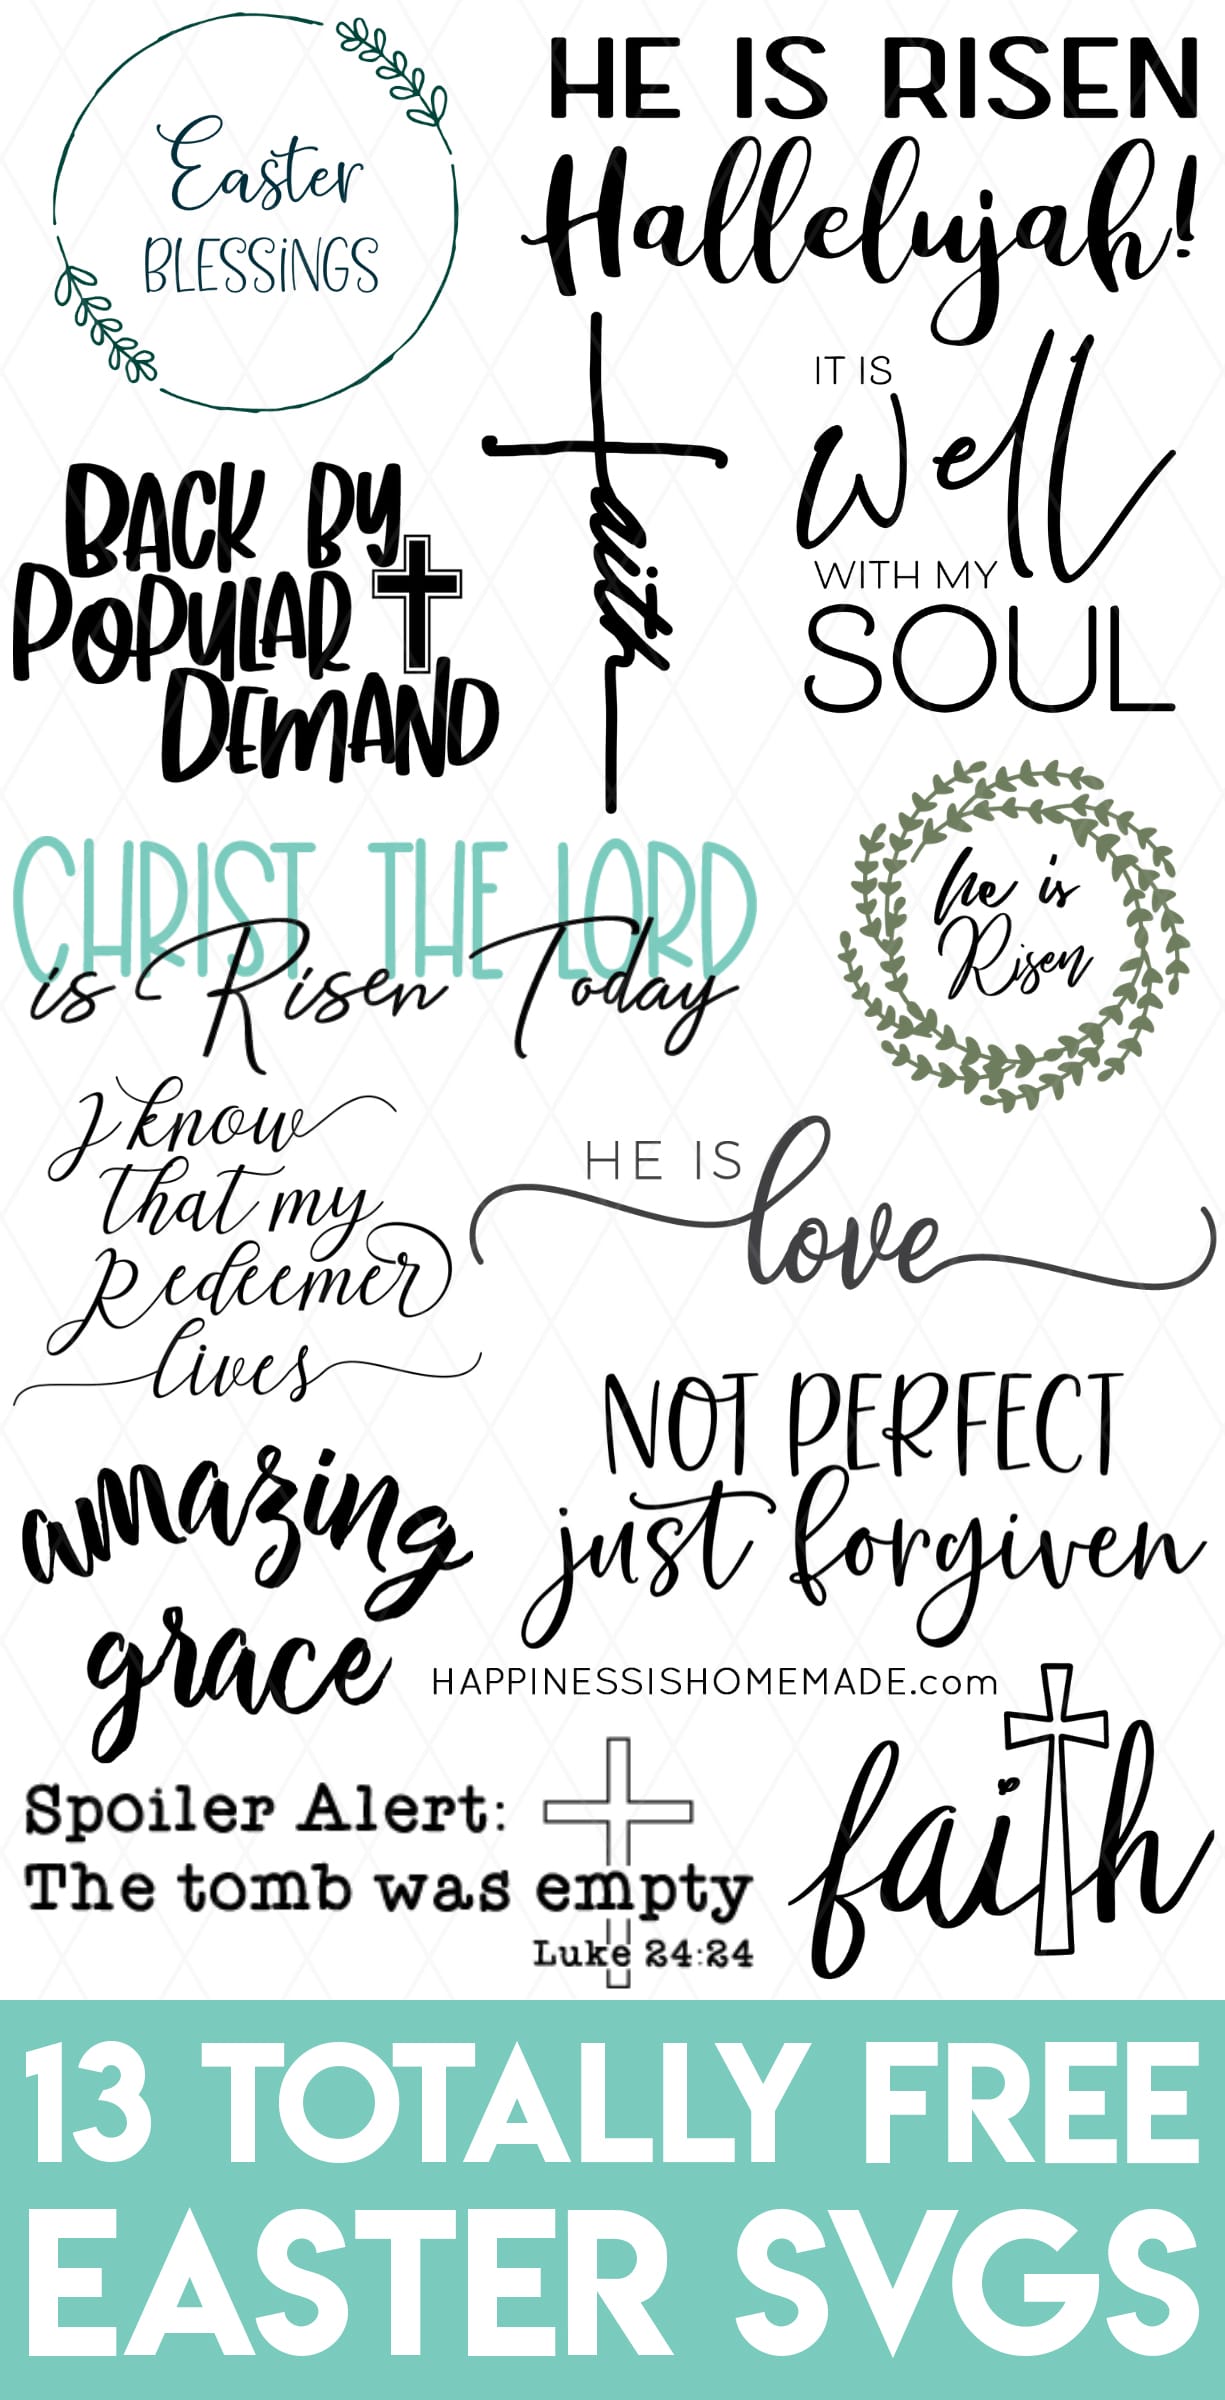 Easter
BLESSiNGS
HE IS RISEN
Hallelujah!
BACK BY
POPULAR
DEMAND
faith
IT IS
well
WITH MY
SOUL
CHRIST THE LORD
is Risen Today
he is
Risen
I know
that my
Redeemer
lives
HE IS
love
NOT PERFECT
just forgiven
amazing
grace
HAPPINESSISHOMEMADE.com
Spoiler Alert:
The tomb was empty
Luke 24:24
faith
13 TOTALLY FREE
EASTER SVGS